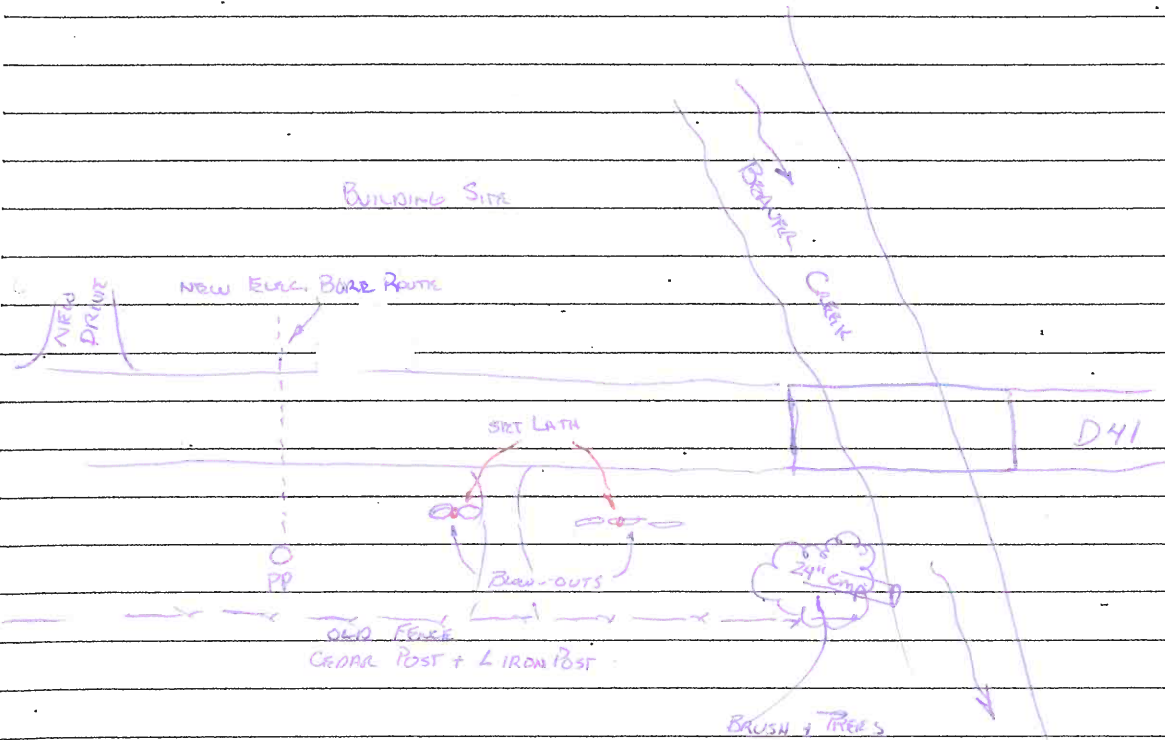 BUILDING SITE
BEAVER
CREEK
NEW ELEC. BORE ROUTE
NEW
DRIVE
SET LATH
D41
BLOW-OUTS
24" CMP
PP
OLD FENCE
CEDAR POST + L IRON POST
BRUSH + TREES